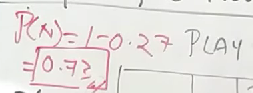 P(N)=1-0.27 PLAY
=0.73